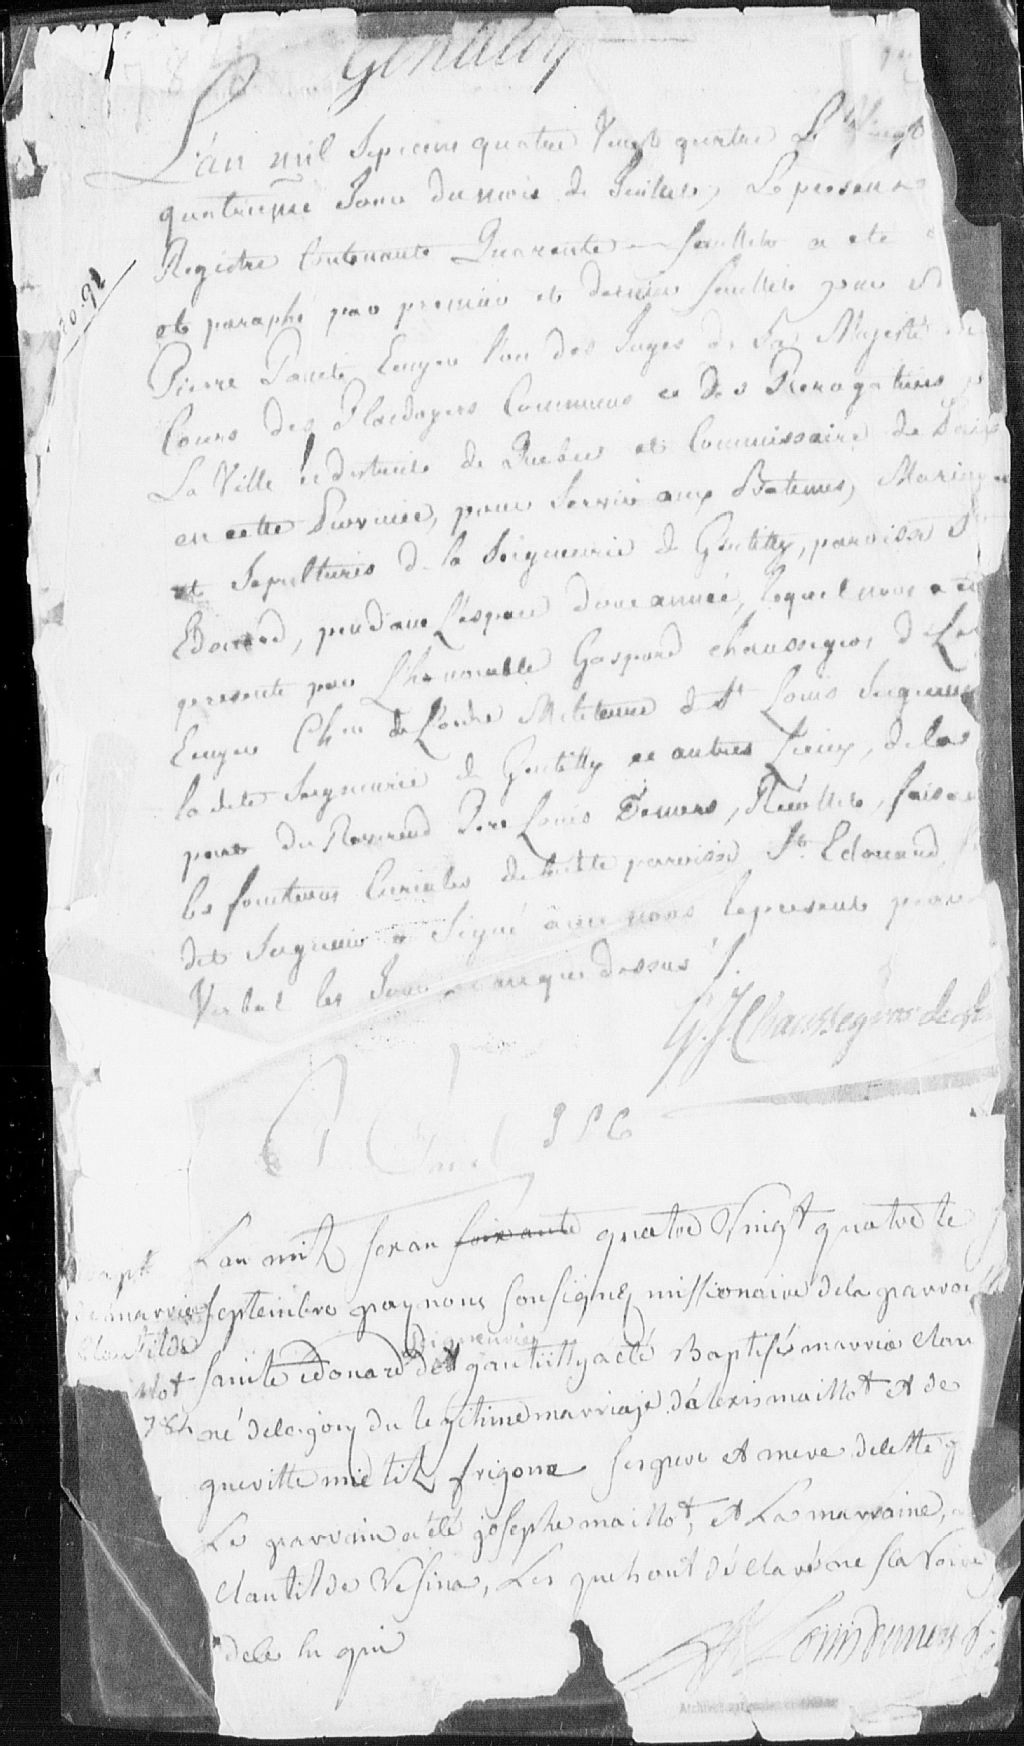 Gentilly
L'an mil Sepcens quatre Vingt quatre Le Vingt
quatrieme Jour du mois de Juillet, Le present
Registre Contenant Quarente feuillets a eté
et paraphé par premier et dernier feuillet par
Pierre Panet Ecuyer l'un des Juges de Sa Majesté
Cours des Plaidoyers Communs et des Prerogatives
La Ville et district de Quebec et Commissaire de Paix
en cette Province, pour Servir aux Batemes, Mariages
et Sepultures de la Seigneurie de Gentilly, paroisse St
Edouard, pendant L'espace d'une année, lequel nous a été
presenté par L'honnorable Gaspard chaussegros de Lery
Ecuyer Chr de L'ordre Militaire de St Louis Seigneur
la dite Seigneurie de Gentilly et autres Lieux, de la
part du Reverend Pere Louis Demers, Récollet, faisant
les fonctions Curiales de ladite paroisse St Edouard
dit Seigneur a Signé avec nous le present procès
Verbal les Jour et an que dessus /.
G. J. Chaussegros de Le
20.92
P Panet J P C
Lan mil soixante quatre Vingt quatre le
Septembre par nous Soussigné missionaire de la parroi
Seigneurie
sainte edouard de gantilly a eté Baptisé marrie clau
né de du legitime marriaje d'alexis maillot et de
frigone ses pere et mere de cette p
Le parrain a été josephe maillot, et La marraine,
Clautilde Vesina, Les quels ont déclaré ne sçavoire
de ce
de marrie
Clautilde
llot
784
Louis Demers
Archives nationales